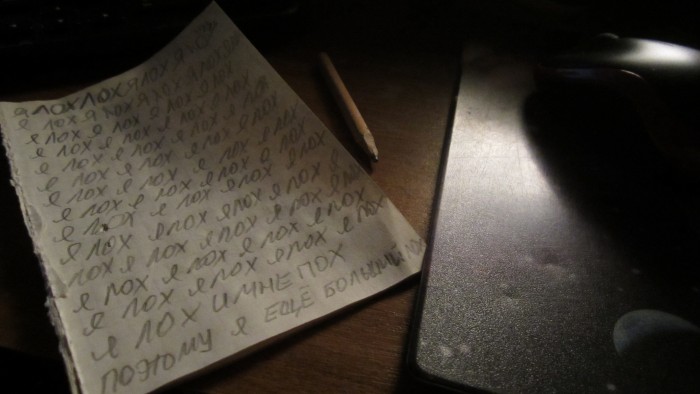 Я ЛОХ ЛОХ Я ЛОХ Я ЛОХ
Я ЛОХ Я ЛОХ Я ЛОХ Я ЛОХ Я
Я ЛОХ Я ЛОХ Я ЛОХ Я ЛОХ
Я ЛОХ Я ЛОХ Я ЛОХ Я ЛОХ
Я ЛОХ Я ЛОХ Я ЛОХ Я ЛОХ
Я ЛОХ Я ЛОХ Я ЛОХ Я ЛОХ
Я ЛОХ Я ЛОХ Я ЛОХ Я ЛОХ
Я ЛОХ Я ЛОХ Я ЛОХ Я ЛОХ
Я ЛОХ Я ЛОХ Я ЛОХ Я ЛОХ
ЛОХ Я ЛОХ Я ЛОХ Я ЛОХ Я ЛОХ
Я ЛОХ Я ЛОХ Я ЛОХ Я ЛОХ
Я ЛОХ Я ЛОХ Я ЛОХ Я ЛОХ
Я ЛОХ И МНЕ ПОХ
ПОЭТОМУ Я ЕЩЁ БОЛЬШИЙ ЛОХ